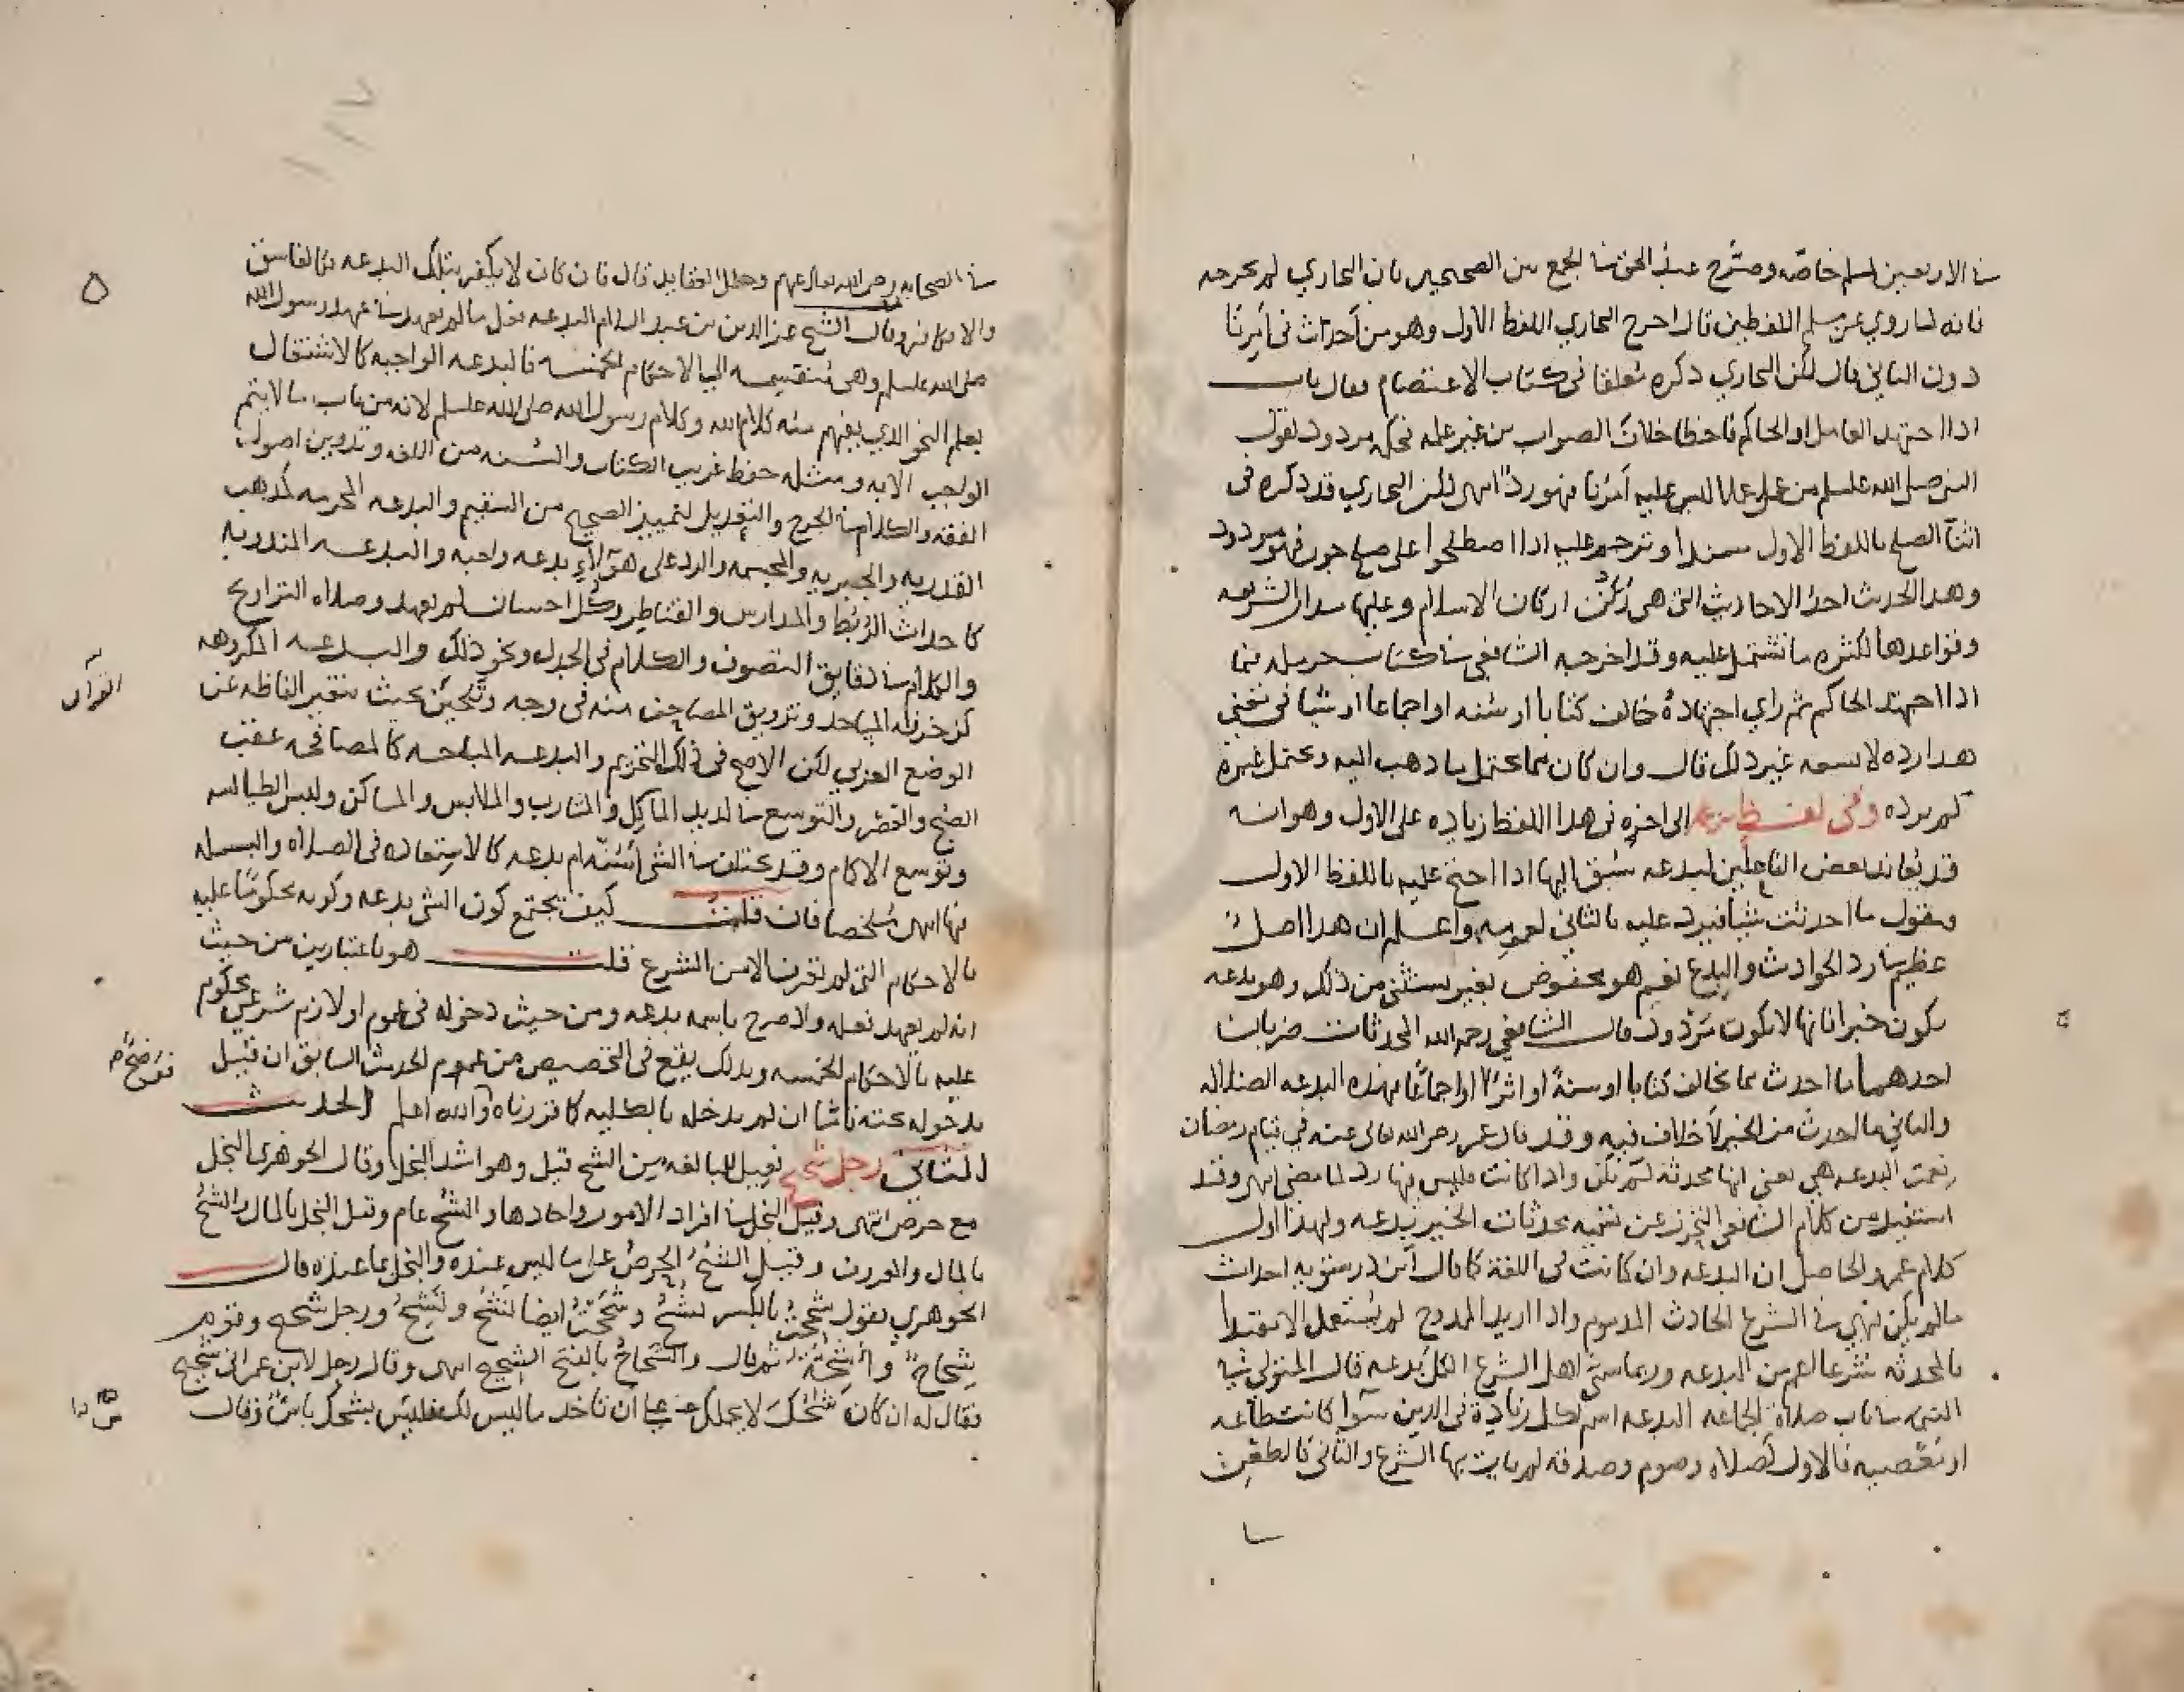 في الاربعين لمسلم خاصة وصرح عبد الحق في الجمع بين الصحيحين بان البخاري لم يخرجه
فانه لما روي عن مسلم اللفظين قال اخرج البخاري اللفظ الاول وهو من أحدث في أمرنا
دون الثاني قال لكن البخاري ذكره معلقا في كتاب الاعتصام فقال باب
اذا اجتهد العامل او الحاكم فاخطا خلاف الصواب من غير علم فحكمه مردود لقول
النبي صلى الله عليه وسلم من عمل عملا ليس عليه أمرنا فهو رد انتهى لكن البخاري قد ذكره في
اثنا الصلح باللفظ الاول مسندا وترجم عليه اذا اصطلحوا على صلح جور فهو مردود
وهذا الحديث احد الاحاديث التي هي ركن من اركان الاسلام وعليها مدار الشريعه
وقواعدها لكثرة ما تشتمل عليه وقد اخرجه الشافعي في كتاب حرمله فيما
اذا اجتهد الحاكم ثم راي اجتهادهُ خالف كتابا او سنه او اجماعا او شيا في معني
هذا رده لا يسعه غير ذلك قال وان كان مما يحتمل ما ذهب اليه ويحتمل غيره
لم يرده وفي لفظ الى اخره في هذا اللفظ زياده على الاول وهو انه
قد يعاند بعض الفاعلين لبدعه سُبق اليها اذا احتج عليه باللفظ الاول
ويقول ما احدثت شيا فيرد عليه بالثاني لعمومه واعلم ان هذا اصل
عظيم في رد الحوادث والبدع نعم هو مخصوص بغير يستثنى من ذلك وهو بدعه
يكون خيرا فانها لا يكون مردود قال الشافعي رحمه الله المحدثات ضربان
احدهما ما احدث مما يخالف كتابا او سنةً او اثرًا او اجماعًا فهذه البدعه الضلاله
والثاني ما احدث من الخير لا خلاف فيه وقد قال عمر رضي الله تعالى عنه في قيام رمضان
نعمت البدعه هي يعني انها محدثه لم تكن واذا كانت فليس فيها رد لما مضى انتهى وقد
استفيد من كلام الشافعي التحرز عن تسميه محدثات الخير بدعه ولهذا اول
كلام عمر والحاصل ان البدعه وان كانت في اللغة كما قال ابن درستويه احداث
ما لم يكن فهي في الشرع الحادث المذموم واذا اريد الممدوح لم يستعمل الا مقيدا
فالمحدثه شرعا اعم من البدعه وربما سمى اهل الشرع الكل بدعه قال المتولي في
التتمه في باب صلاة الجماعه البدعه اسم لكل زيادة في الدين سوا كانت طاعه
او معصيه فالاول كصلاه وصوم وصدقه لم يات بها الشرع والثاني كالطعن
في الصحابه رضي الله تعالى عنهم وخلل العقايد قال فان كان لا يكفر بتلك البدعه فكالفاسق
والا فكافر وقال الشيخ عز الدين بن عبد السلام البدعه فعل ما لم يعهد في عهد رسول الله
صلى الله عليه وسلم وهي منقسمه الي الاحكام الخمسه فالبدعه الواجبه كالاشتغال
بعلم النحو الذي يفهم منه كلام الله وكلام رسول الله صلى الله عليه وسلم لانه من باب ما لا يتم
الواجب الا به ومثله حفظ غريب الكتاب والسنه من اللغه وتدوين اصول
الفقه والكلام في الجرح والتعديل لتمييز الصحيح من السقيم والبدعه المحرمه كمذهب
القدريه والجبريه والمجسمه والرد على هؤلاءِ بدعه واجبه والبدعه المندوبه
كاحداث الرُبُط والمدارس والقناطر وكل احسان لم يعهد وصلاه التراويح
والكلام في دقايق التصوف والكلام في الجدل ونحو ذلك والبدعه المكروهه
كزخرفه المساجد وتزويق المصاحف منه في وجه وتلحين بحيث يتغير الفاظه عن
القرآن
الوضع العربي لكن الاصح في ذلك التحريم والبدعه المباحه كالمصافحه عقب
الصبح والعصر والتوسع في لذيذ الماكل والمشارب والملابس والمساكن ولبس الطيالسه
وتوسع الاكمام وقد يختلف في الشي أسُنّه ام بدعه كالاستعاذه في الصلاه والبسمله
فيها انتهى ملخصا فان قلت كيف يجتمع كون الشي بدعه وكونه محكومًا عليه
بالاحكام التي لم تعرف الا من الشرع قلت هو باعتبارين من حيث
انه لم يعهد فعله ولا صرح باسمه بدعه ومن حيث دخوله في عموم او لازم شرعي محكوم
عليه بالاحكام الخمسه وبذلك يقع في التخصيص من عموم الحديث السابق ان قيل
بدخوله تحته ناشا ان لم يدخله بالكليه كما قررناه والله اعلم الحديث
الثاني رجل شحيح فعيل للمبالغه من الشح قيل وهو اشد البخل وقال الجوهري البخل
مع حرص انتهى وقيل البخل في افراد الامور واحادها والشح عام وقيل البخل بالمال والشح
بالمال والمعروف وقيل الشح الحرص على ما ليس عنده والبخل بما عنده قال
الجوهري يقول شححت بالكسر تشح وشححت ايضا تشُح وتشِح ورجل شحيح وقوم
شِحاح وأشِحَّة ثم قال والشَحاح بالفتح الشحيح انتهى وقال رجل لابن عمر اني شحيح
فقال له ان كان شحك لا يحملك على أن تاخذ ما ليس لك فليس بشحك باس وقال